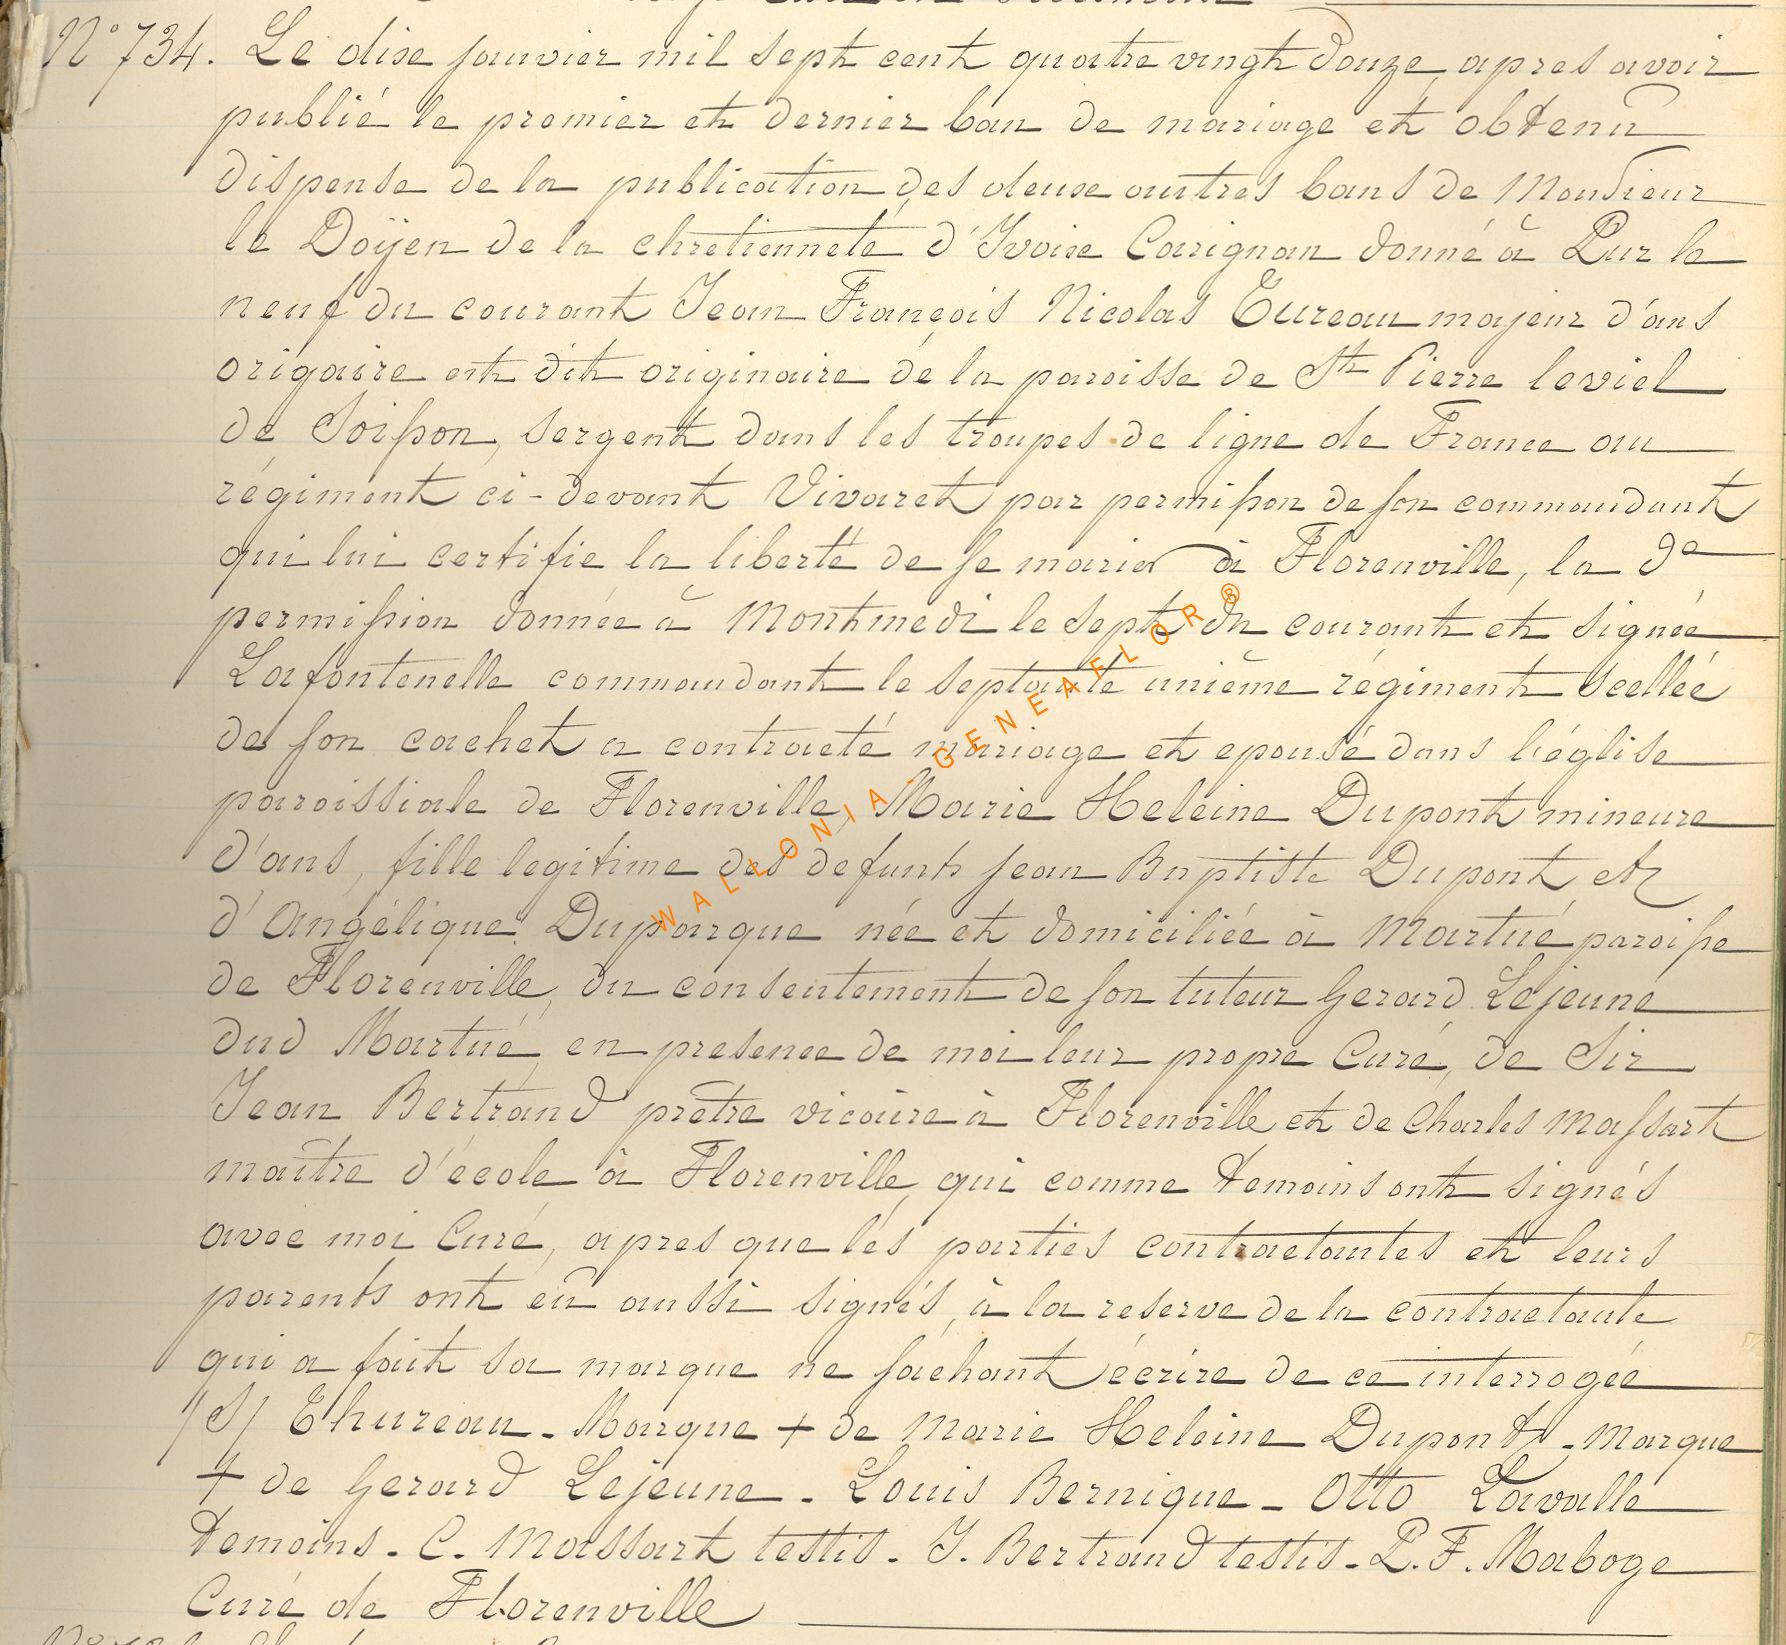 N° 734. Le dixe janvier mil sept cent quatre vingt douze, apres avoir
publié le premier et dernier ban de mariage et obtenu
dispense de la publication des deuxe autres bans de Monsieur
le Doÿen de la chretienneté d'Yvoixe Carignan donné à Pur le
neuf du courant Jean François Nicolas Tureau majeur d'ans
origaire et dit originaire de la paroisse de St Pierre leviel
de Soisson, sergent dans les troupes de ligne de France au
régiment ci-devant Vivaret par permisson de son commandant
qui lui certifie la liberté de se marier à Florenville, la de
permission donnée à Montmedi le sept du courant et signée
Lafontenelle commandant le septante unième régiment scellée
de son cachet a contracté mariage et epousé dans l'église
paroissiale de Florenville, Marie Heleine Dupont mineure
d'ans, fille legitime des defunts jean Baptiste Dupont et
d'Angélique Duparque née et domiciliée à Martué paroisse
de Florenville, du consentement de son tuteur Gerard Lejeune
dud Martué, en presence de moi leur propre Curé, de Sir
Jean Bertrand prêtre vicaire à Florenville et de Charles Massart
maître d'école à Florenville, qui comme temoins ont signés
avec moi Curé, apres que les parties contractantes et leurs
parents ont eu aussi signés, à la reserve de la contractante
qui a fait sa marque ne sachant écrire de ce interrogée
/S/ Thureau - Marque + de Marie Heleine Dupont - Marque
+ de Gerard Lejeune - Louis Bernique - Otto Lavallé
temoins - C. Massart testis - J. Bertrand testis - P. F. Maboge
Curé de Florenville
WALLONIA - GENEAFLOR ®